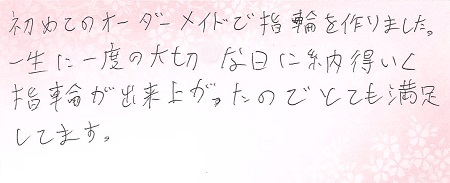 初めてのオーダーメイドで指輪を作りました。
一生に一度の大切な日に納得いく
指輪が出来上がったのでとても満足
してます。